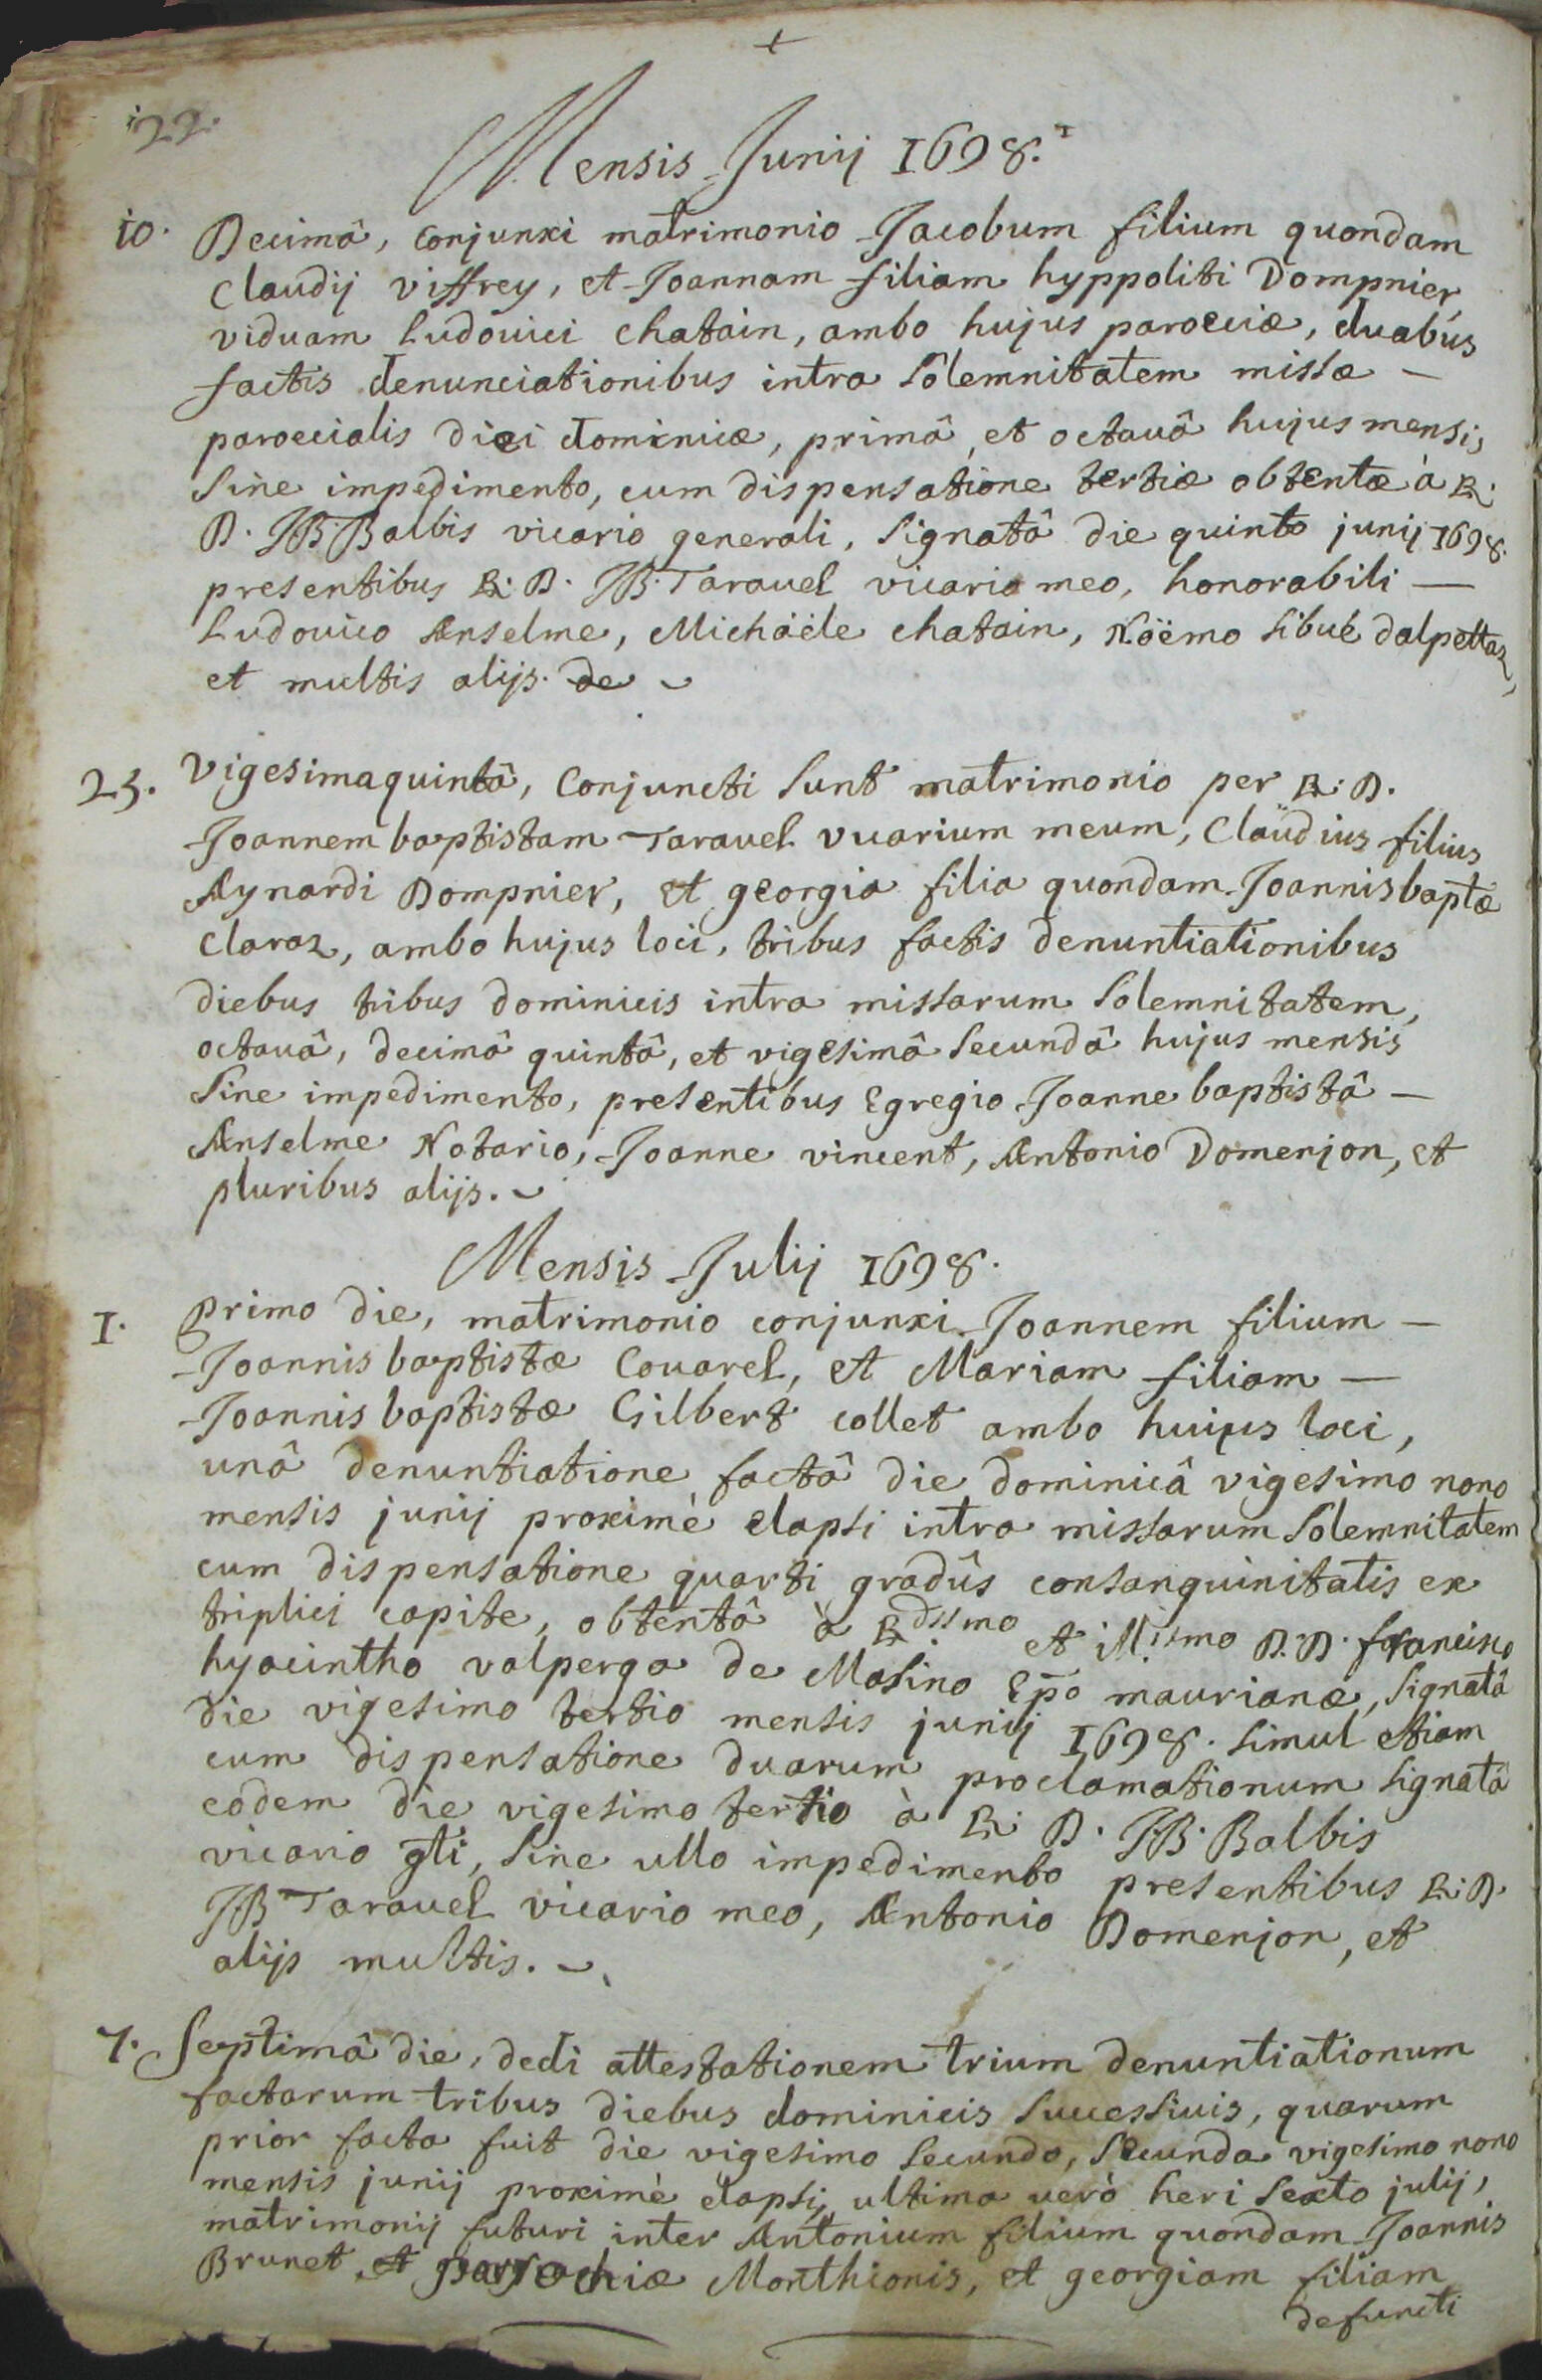 122.
Mensis Junij 1698.
10. Decimâ, conjunxi matrimonio Jacobum filium quondam
Claudij viffrey, et Joannam filiam hyppoliti Dompnier
viduam Ludovici chatain, ambo hujus paroeciæ, duabus
factis denunciationibus intra Solemnitatem missæ —
paroecialis diei dominicæ, primâ, et octauâ hujus mensis
Sine impedimento, cum dispensatione tertiæ obtentæ à R:
D. JB Balbis vicario generali, Signatâ die quinto junij 1698.
presentibus R: D. JB. Tarauel vicario meo, honorabili —
Ludouico Anselme, Michaële chatain, Nöëmo Sibué dalpettaz,
et multis alijs. de
25. Vigesimaquintâ, Conjuncti Sunt matrimonio per R: D.
Joannem baptistam Tarauel vicarium meum, Claudius filius
Aynardi Dompnier, et georgia filia quondam Joannis baptæ
Claraz, ambo hujus loci, tribus factis denuntiationibus
diebus tribus dominicis intra missarum Solemnitatem,
octauâ, decimâ quintâ, et vigesimâ Secundâ hujus mensis
Sine impedimento, presentibus Egregio Joanne baptistâ —
Anselme Notario, Joanne vincent, Antonio Domenjon, et
pluribus alijs.
Mensis Julij 1698.
1. primo die, matrimonio conjunxi Joannem filium —
Joannis baptistæ Couarel, et Mariam filiam —
Joannis baptistæ Gilbert collet ambo huius loci,
unâ denuntiatione factâ die dominicâ vigesimo nono
mensis junij proximè elapsi intra missarum Solemnitatem
cum dispensatione quarti gradûs consanguinitatis ex
triplici capite, obtentâ à Rdssmo et illssmo D.D. francisco
hyacintho valperga de Masino Epō maurianæ, Signatâ
die vigesimo tertio mensis junij 1698. Simul etiam
cum dispensatione duarum proclamationum Signatâ
eôdem die vigesimo tertio à R: D. JB. Balbis
vicario gli, Sine ullo impedimento presentibus R: D.
JB Tarauel vicario meo, Antonio Domenjon, et
alijs multis.
7. Septimâ die, dedi attestationem trium denuntiationum
factarum tribus diebus dominicis Successiuis, quarum
prior facta fuit die vigesimo Secundo, Secunda vigesimo nono
mensis junij proximè elapsi, ultima uerò heri Sexto julij,
matrimonij futuri inter Antonium filium quondam Joannis
Brunet, et parrochiæ Monthionis, et georgiam filiam
defuncti